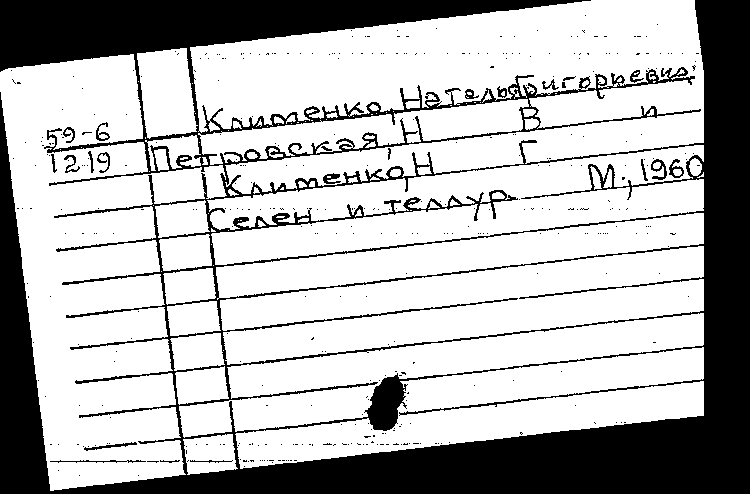 Клименко, Наталья Григорьевна.
59-6
1219 Петровская, Н В и
Клименко, Н Г
Селен и теллур. М., 1960